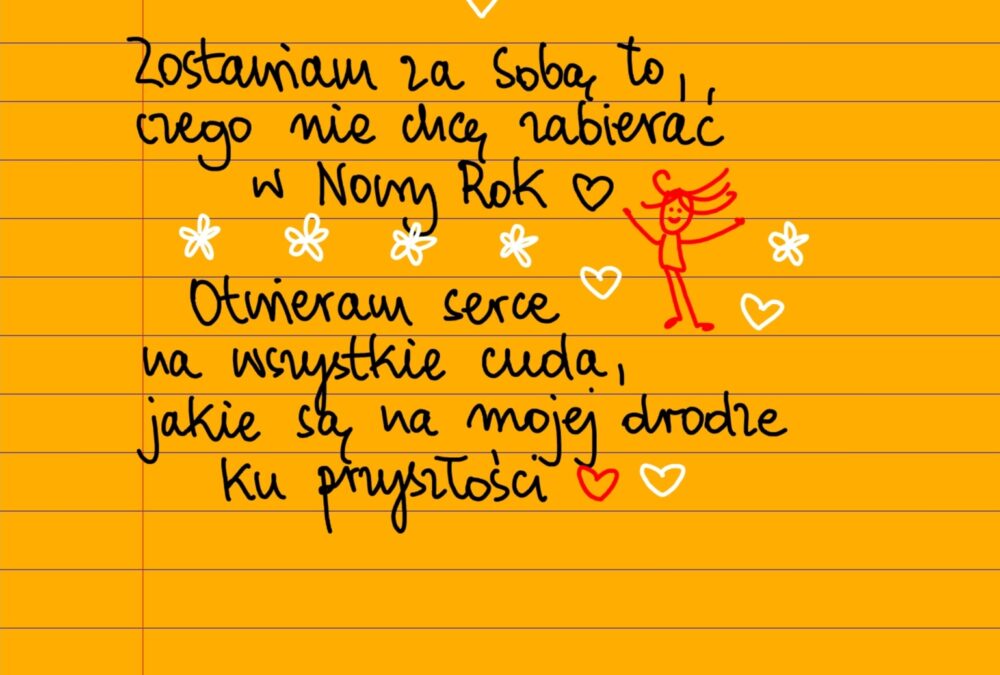 Zostawiam za sobą to,
czego nie chcę zabierać
w Nowy Rok
Otwieram serce
na wszystkie cuda,
jakie są na mojej drodze
ku przyszłości